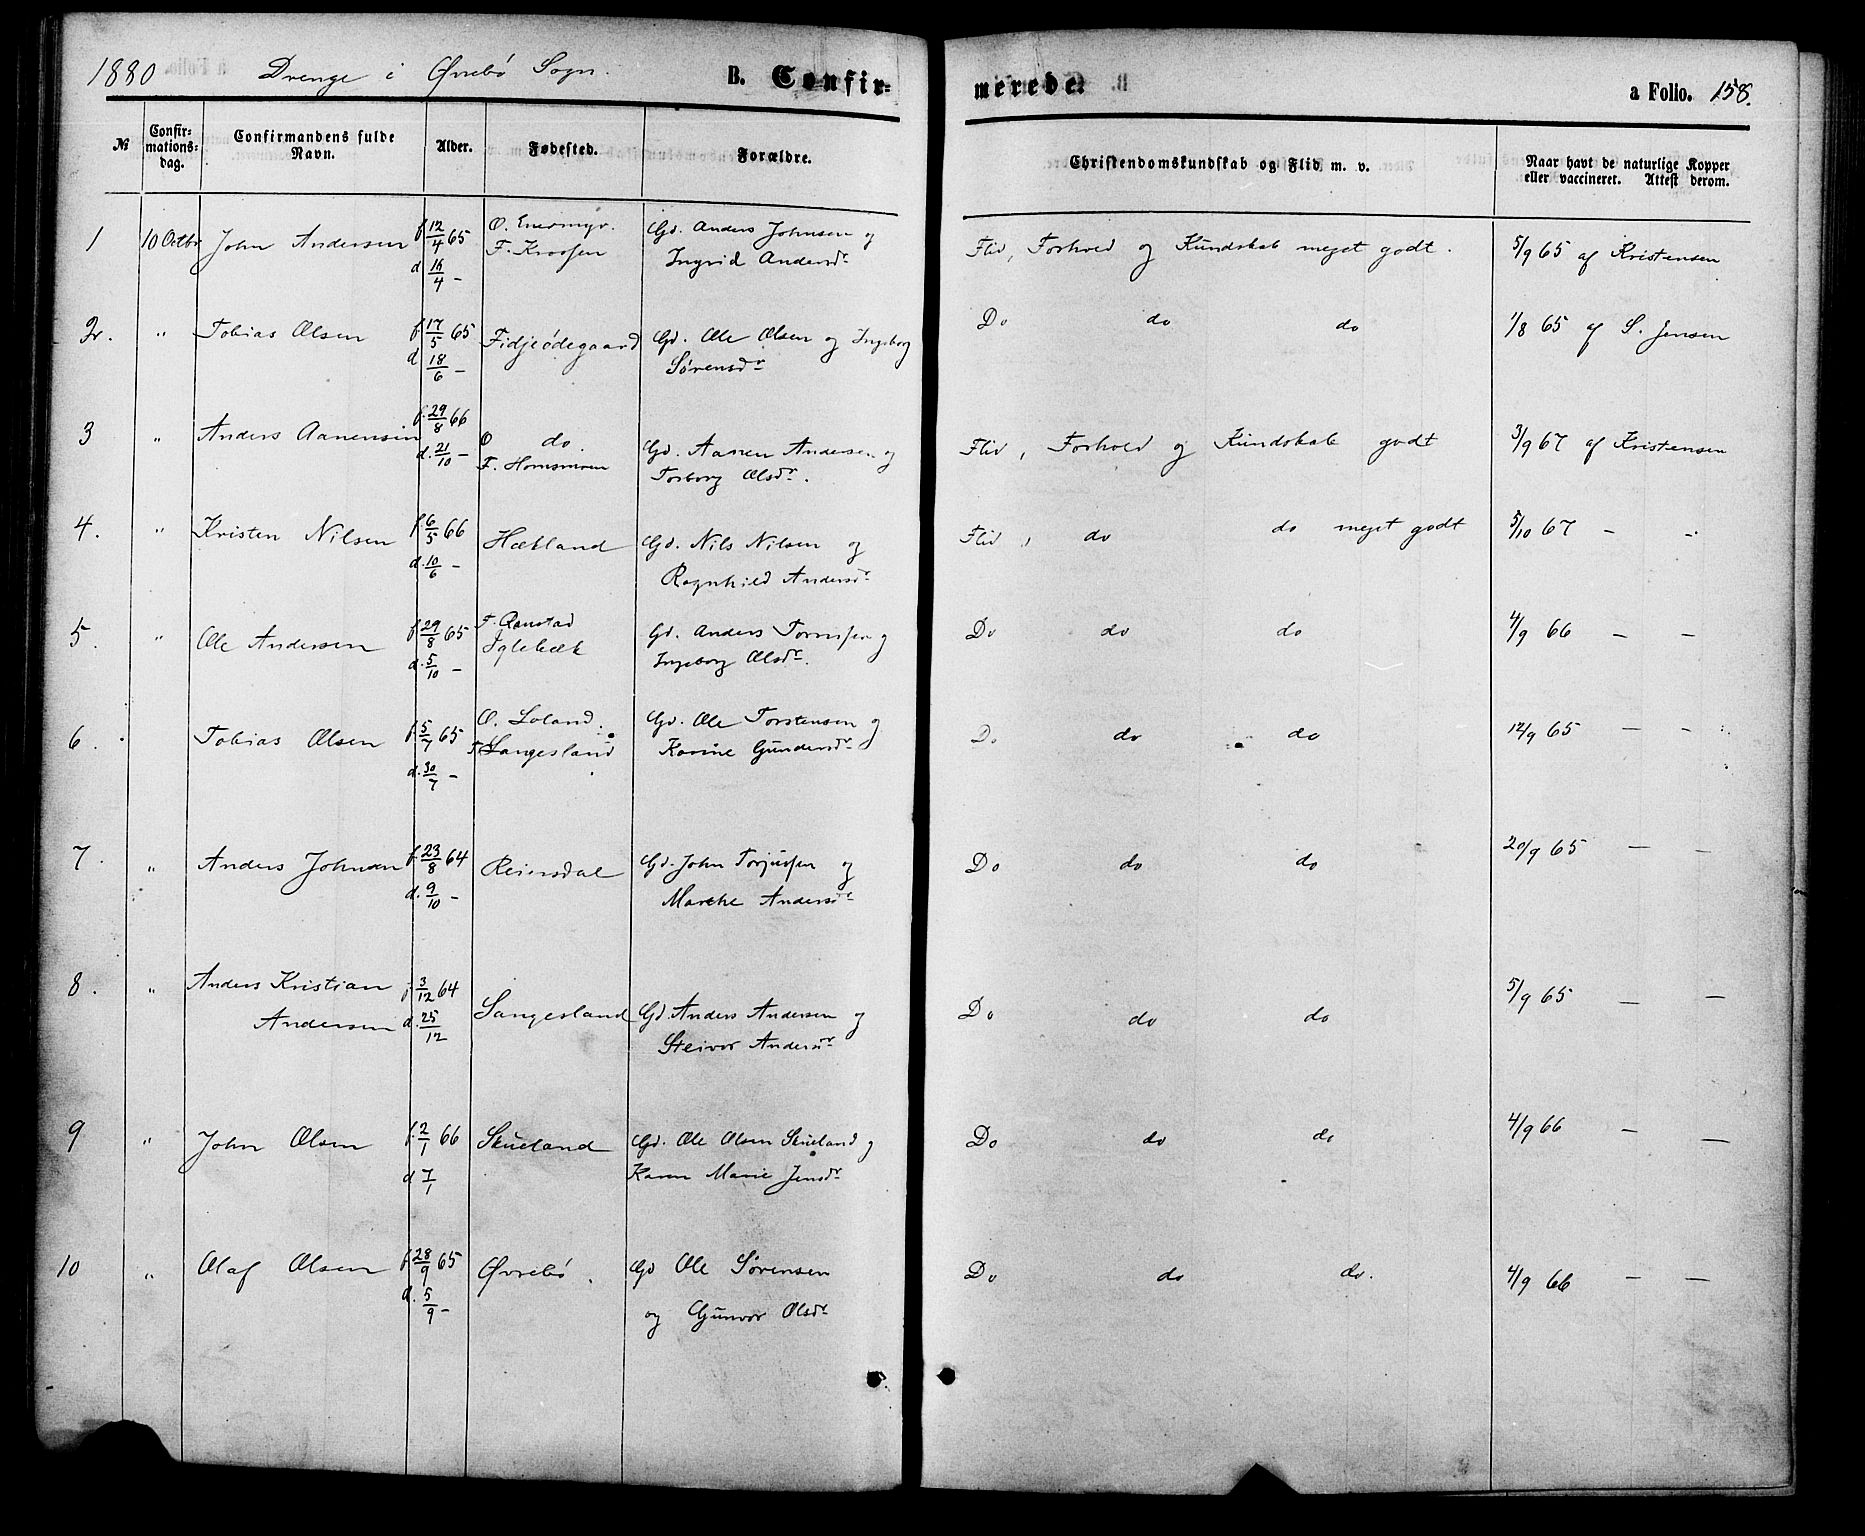 1880 Drenge i Øvrebø Sogn. B. Confirmerede. a Folio. 158.
№ Confirmationsdag. Confirmandens fulde Navn. Alder. Fødested. Forældre. Christendomskundskab og Flid m. v. Naar havt de naturlige Kopper eller vaccineret. Attest derom.
1 10 Octbr John Andersen f. 12/4 65 d 16/4 – O. F. Gd. Anders Johnsen og Ingrid Andersdr Flid, Forhold og Kundskab meget godt. 5/9 65 af Kristensen
2. " Tobias Olsen f. 17/5 65 d 18/6 – Fidjeødegaard Gd. Ole Olsen og Ingeborg Sørensdr Do do do 1/8 65 af S. Jensen
3 " Anders Aanensen f. 29/8 66 d. 21/10 – O do. F. Homsmoen Gd. Aanen Andersen og Torborg Olsdr. Flid, Forhold og Kundskab godt 3/9 67 af Kristensen
4. " Kristen Nilsen f. 6/5 66 d. 10/6 – Hækland Gd. Nils Nilsen og Ragnhild Andersdr Flid, do do meget godt 5/10 67 – –
5. " Ole Andersen f. 29/8 65 d. 5/10 – F. Iglebæk Gd. Anders og Ingeborg Olsdr. Do do do 4/9 66 – –
6. Tobias Olsen f. 5/7 65 d. 30/7 – O. Loland. F. Langesland Gd. Ole Torstensen og Karine Gundersdr Do do do 12/9 65 – –
7. " Anders Johnsen f. 23/8 64 d. 9/10 – Reiersdal Gd. John Torjussen og Marthe Andersdr Do do do 20/9 65 – –
8. " Anders Kristian Andersen f 3/12 64 d. 25/12 Langesland Gd. Anders Andersen og Steinvor Andersdr Do do do 5/9 65 – –
9 " John Olsen f. 2/1 66 d 7/1 Skueland Gd. Ole Olsen Skueland og Karen Marie Jensdr Do do do 4/9 66 – –
10 " Olaf Olsen f. 28/9 65 d. 5/9 – Øvrebø. Gd Ole Sørensen og Gunvor Olsdr Do do do. 4/9 66 – –